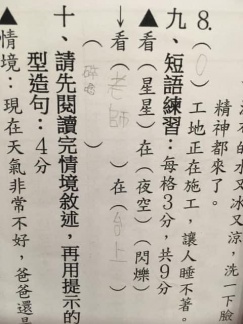 冰的水又冰又涼，洗一下臉
精神都來了。
8.（0）工地正在施工，讓人睡不著。
九、短語練習：每格3分，共9分
▲看（星星）在（夜空）（閃爍）
↓看（老師）在（台上）
（）
十、請先閱讀完情境敘述，再用提示的
型造句：4分
▲情境：現在天氣非常不好，爸爸還是